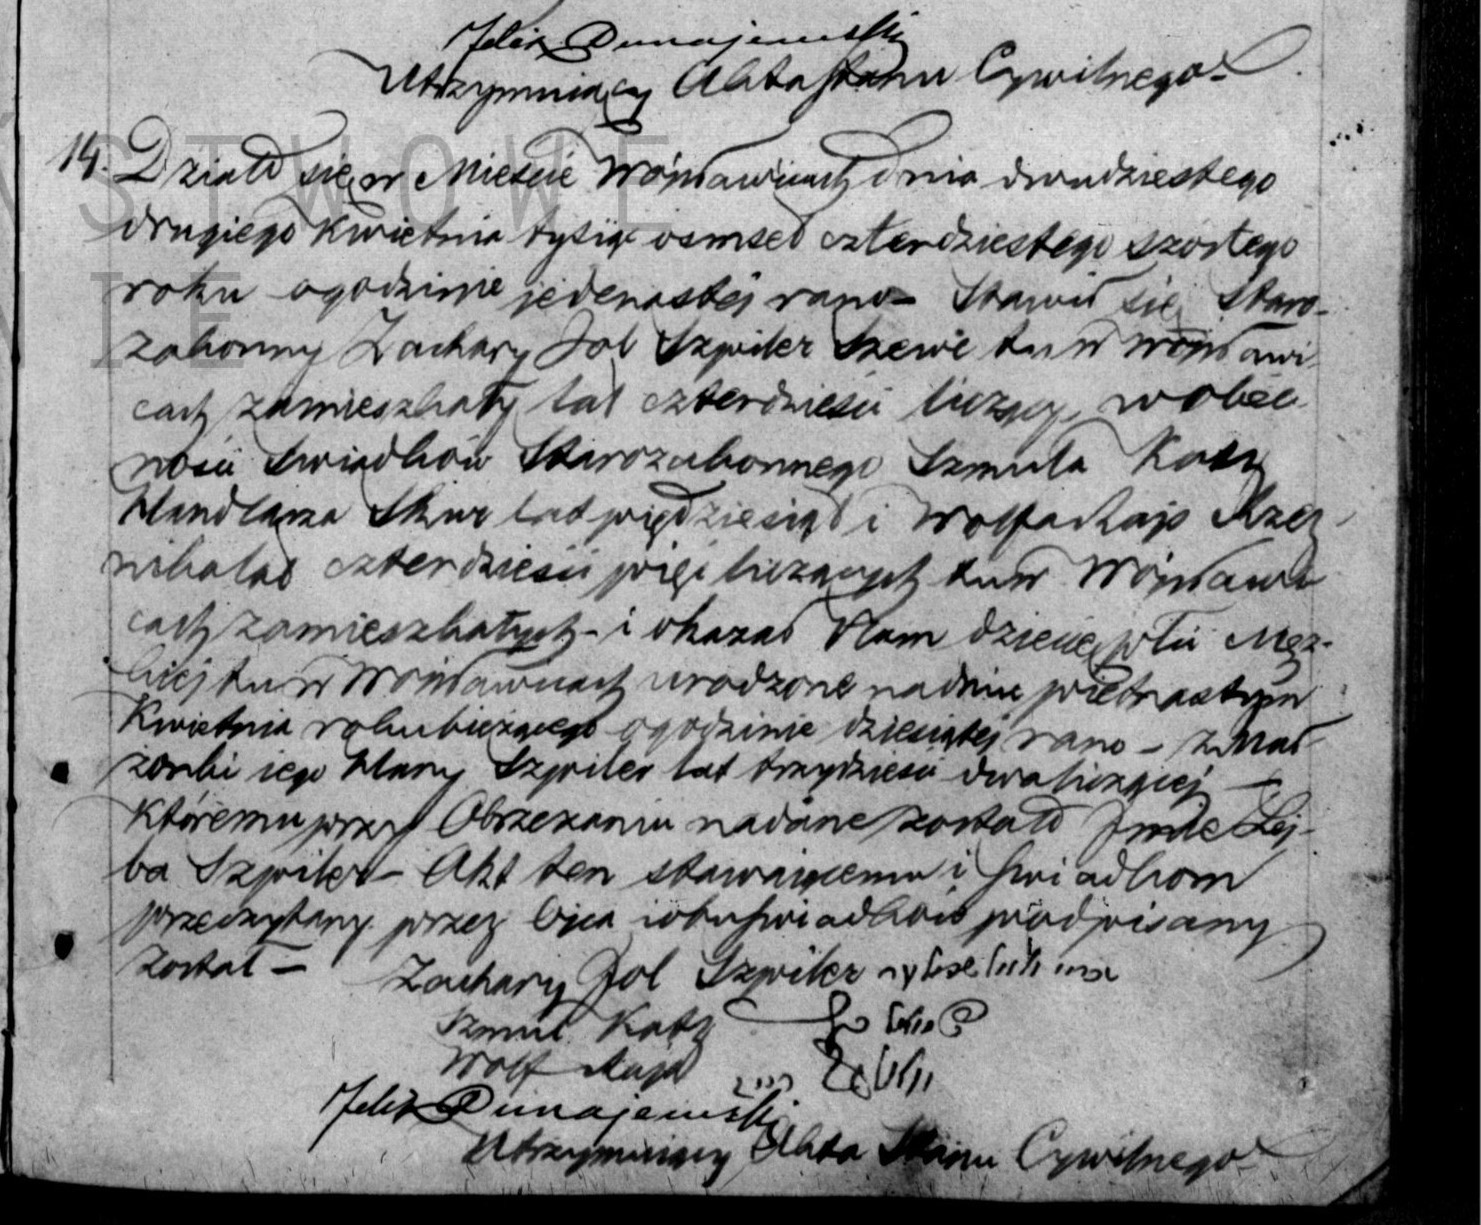 Felix Dunajewski
Utrzymuiący Akta Stanu Cywilnego
STWOWE
IE
14. Działo się w Mieście Woysławicach dnia dwudziestego
drugiego Kwietnia tysiąc osmset czterdziestego szostego
roku o godzinie jedenastej rano – Stawił się Staro-
zakonny Zachary Jol Szpiler Szewc tu w Woysławi-
cach zamieszkały lat czterdzieści liczący, w obec
ności Swiadków Starozakonnego Szmula Katz
Handlarza Skur lat pięćdziesiąt i Wolfa Rzez-
nika lat czterdzieści pięć liczących tu w Woysławi
cach zamieszkałych – i okazał Nam dziecię płci Męz-
kiej tu w Woysławicach urodzone na dniu piętnastym
Kwietnia roku bieżącego o godzinie dziesiątej rano – z Mał-
żonki iego Many Szpiler lat trzydzieści dwa liczącej –
Któremu przy Obrzezaniu nadane zostało Imie Lej-
ba Szpiler – Akt ten stawaiącemu i swiadkom
przeczytany przez Ojca i obu swiadków podpisany
został –
Zachary Jol Szpiler
Szmul Katz
Wolf
Felix Dunajewski
Utrzymuiący Akta Stanu Cywilnego